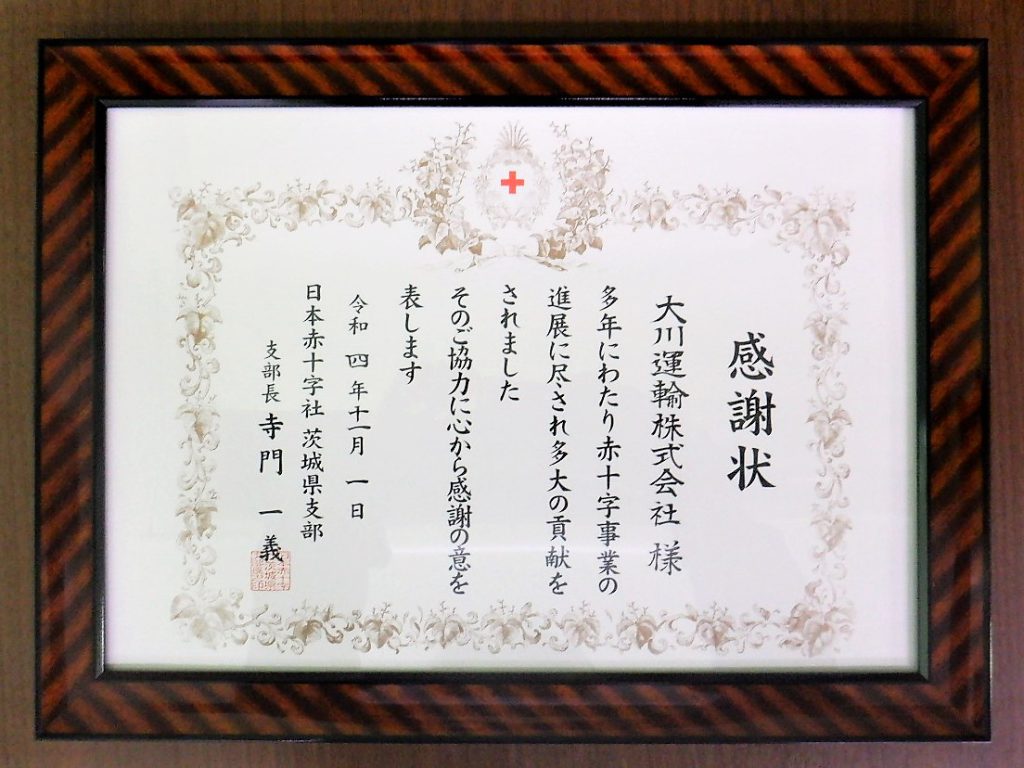 感謝状
大川運輸株式会社 様
多年にわたり赤十字事業の
進展に尽され多大の貢献を
されました
そのご協力に心から感謝の意を
表します
令和 四 年 十一月 一 日
日本赤十字社 茨城県支部
支部長 寺門 一 義